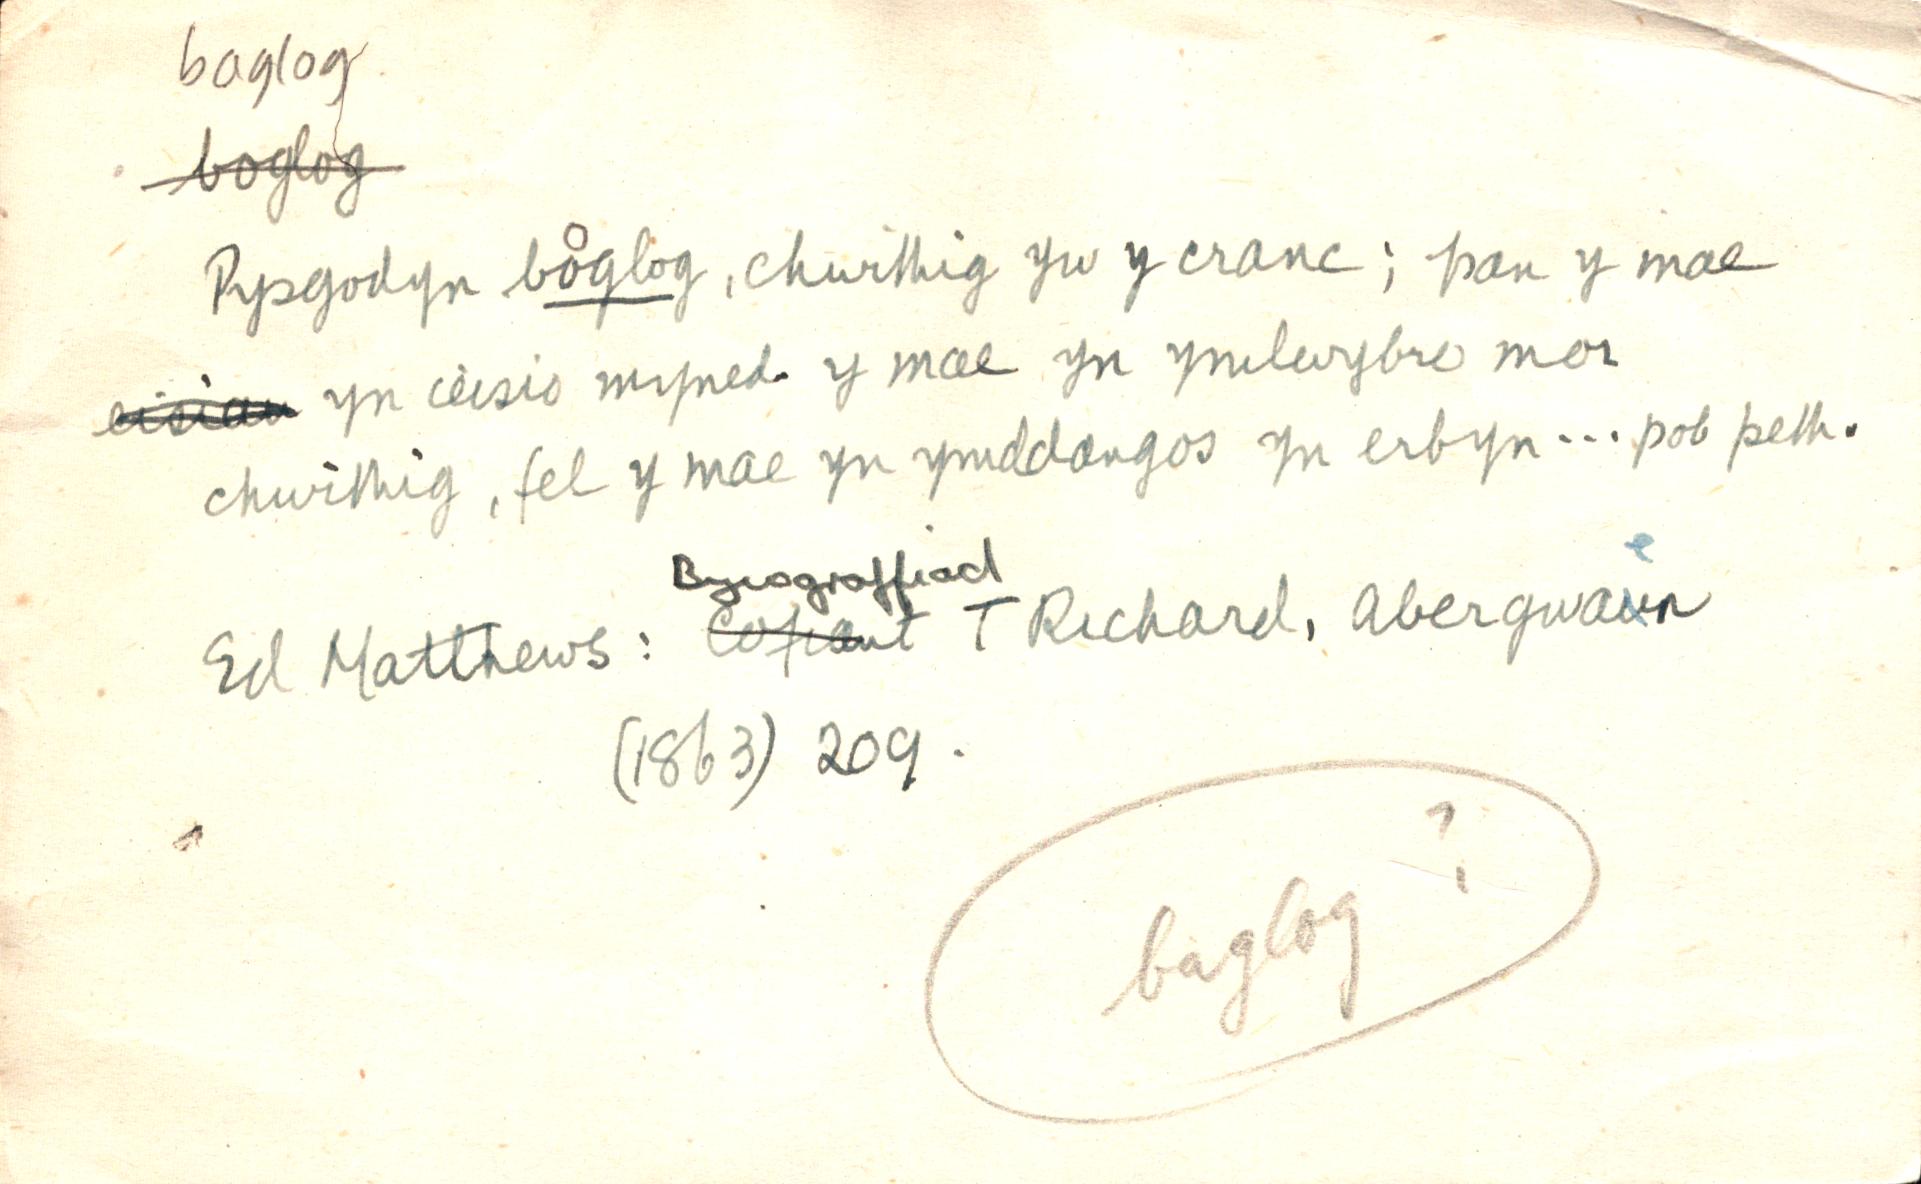 baglog
boglog
Pysgodyn boglog, chwithig yw y cranc; pan y mae
eisiau yn ceisio myned y mae yn ymlwybro mor
chwithig, fel y mae yn ymddangos yn erbyn ... pob peth.
Bywgraffiad
Ed Matthews: Cofiant T Richard, Abergwaun
e
(1863) 209.
baglog ?